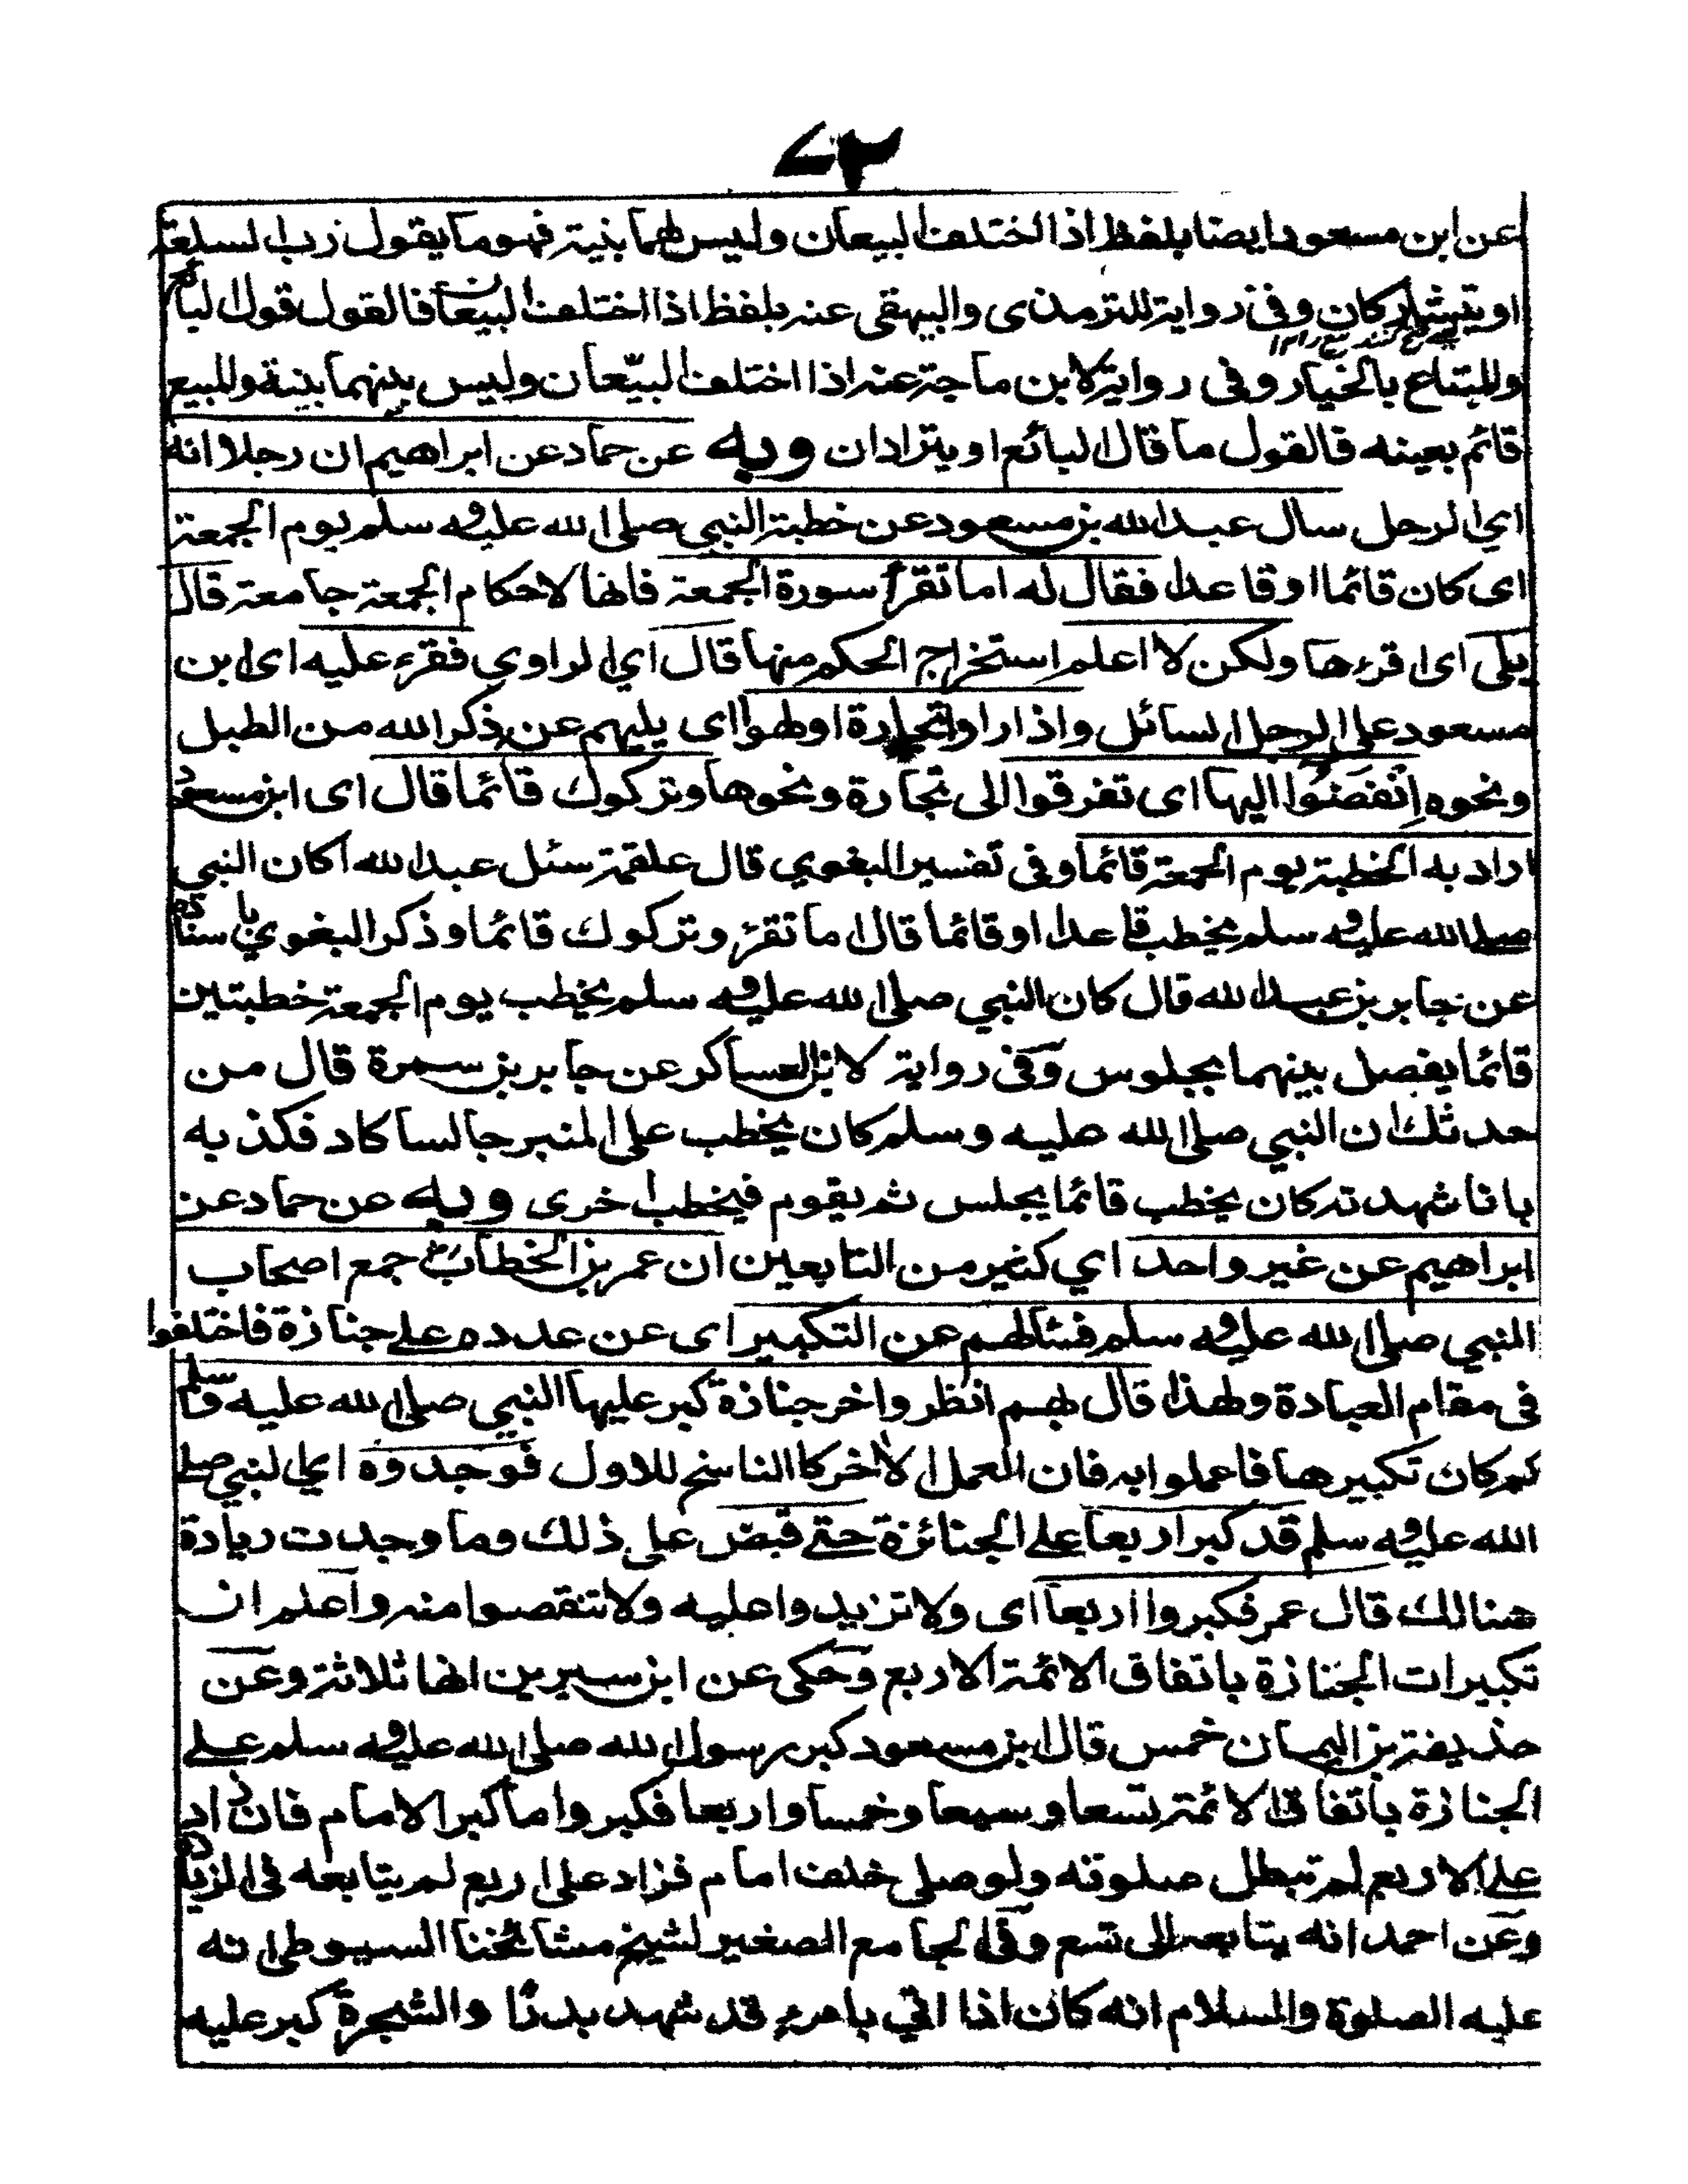 ٧٢
عن ابن مسعود ايضا بلفظ اذا اختلف البيعان وليس لهما بنية فهو ما يقول رب السلعة
او يتتاركان وفى رواية للترمذى والبيهقى عنه بلفظ اذا اختلف البيعان فالقول قول البائع
وللبتاع بالخيار وفى رواية لابن ماجة عنه اذا اختلف البيّعان وليس بينهما بنية وللبيع
قائم بعينه فالقول ما قال البائع او يترادان وبه عن حماد عن ابراهيم ان رجلا انه
اي الرجل سال عبد الله بن مسعود عن خطبة النبي صلى الله عليه وسلم يوم الجمعة
اى كان قائما او قاعدا فقال له اما تقرأ سورة الجمعة فانها لاحكام الجمعة جامعة قال
بلى اى اقرءها ولكن لا اعلم استخراج الحكم منها قال اي الراوي فقرء عليه اى ابن
مسعود على الرجل السائل واذا راوا تجارة او لهوا اى يليهم عن ذكر الله من الطبل
ونحوه اِنْفَضُّوا اليها اى تفرقوا الى تجارة ونحوها وتركوك قائما قال اى ابن مسعود
اراد به الخطبة يوم الجمعة قائما وفى تفسير البغوي قال علقمة سئل عبد الله أكان النبي
صلى الله عليه وسلم يخطب قاعدا او قائما قال اما تقرء وتركوك قائما وذكر البغوي باسناده
عن جابر بن عبد الله قال كان النبي صلى الله عليه وسلم يخطب يوم الجمعة خطبتين
قائما يفصل بينهما بجلوس وفى رواية لابن العساكر عن جابر بن سمرة قال من
حدثك ان النبي صلى الله عليه وسلم كان يخطب على المنبر جالسا كاد فكذ به
بانا شهدته كان يخطب قائما يجلس ثم يقوم فيخطب اخرى وبه عن حماد عن
ابراهيم عن غير واحد اي كثير من التابعين ان عمر بن الخطابؓ جمع اصحاب
النبي صلى الله عليه وسلم فسئلهم عن التكبير اى عن عدده على جنازة فاختلفوا
فى مقام العبادة ولهذا قال لهم انظروا خر جنازة كبر عليها النبي صلى الله عليه وسلم
كم كان تكبيرها فاعملوا به فان العمل الاخر كا الناسخ للاول فوجدوه اي النبي صلى
الله عليه وسلم قد كبر اربعا على الجنائزة حتى قبض على ذلك وما وجدت زيادة
هنالك قال عمر فكبروا اربعا اى ولا تزيدوا عليه ولا تنقصوا منه واعلم ان
تكبيرات الجنازة باتفاق الائمة الاربع وحكى عن ابن سيرين انها ثلاثة وعن
حذيفة بن اليمان خمس قال ابن مسعود كبر رسول الله صلى الله عليه وسلم على
الجنازة باتفاق الائمة تسعا وسبعا وخمسا واربعا فكبروا ما كبر الامام فان زاد
على الاربع لم تبطل صلوته ولو صلى خلف امام فزاد على اربع لم يتابعه فى الزيادة
وعن احمد انه يتابعه الى تسع وفى الجامع الصغير لشيخ مشائخنا السيوطى انه
عليه الصلوة والسلام انه كان اذا اتي بامرء قد شهد بدرًا والشجرة كبر عليه